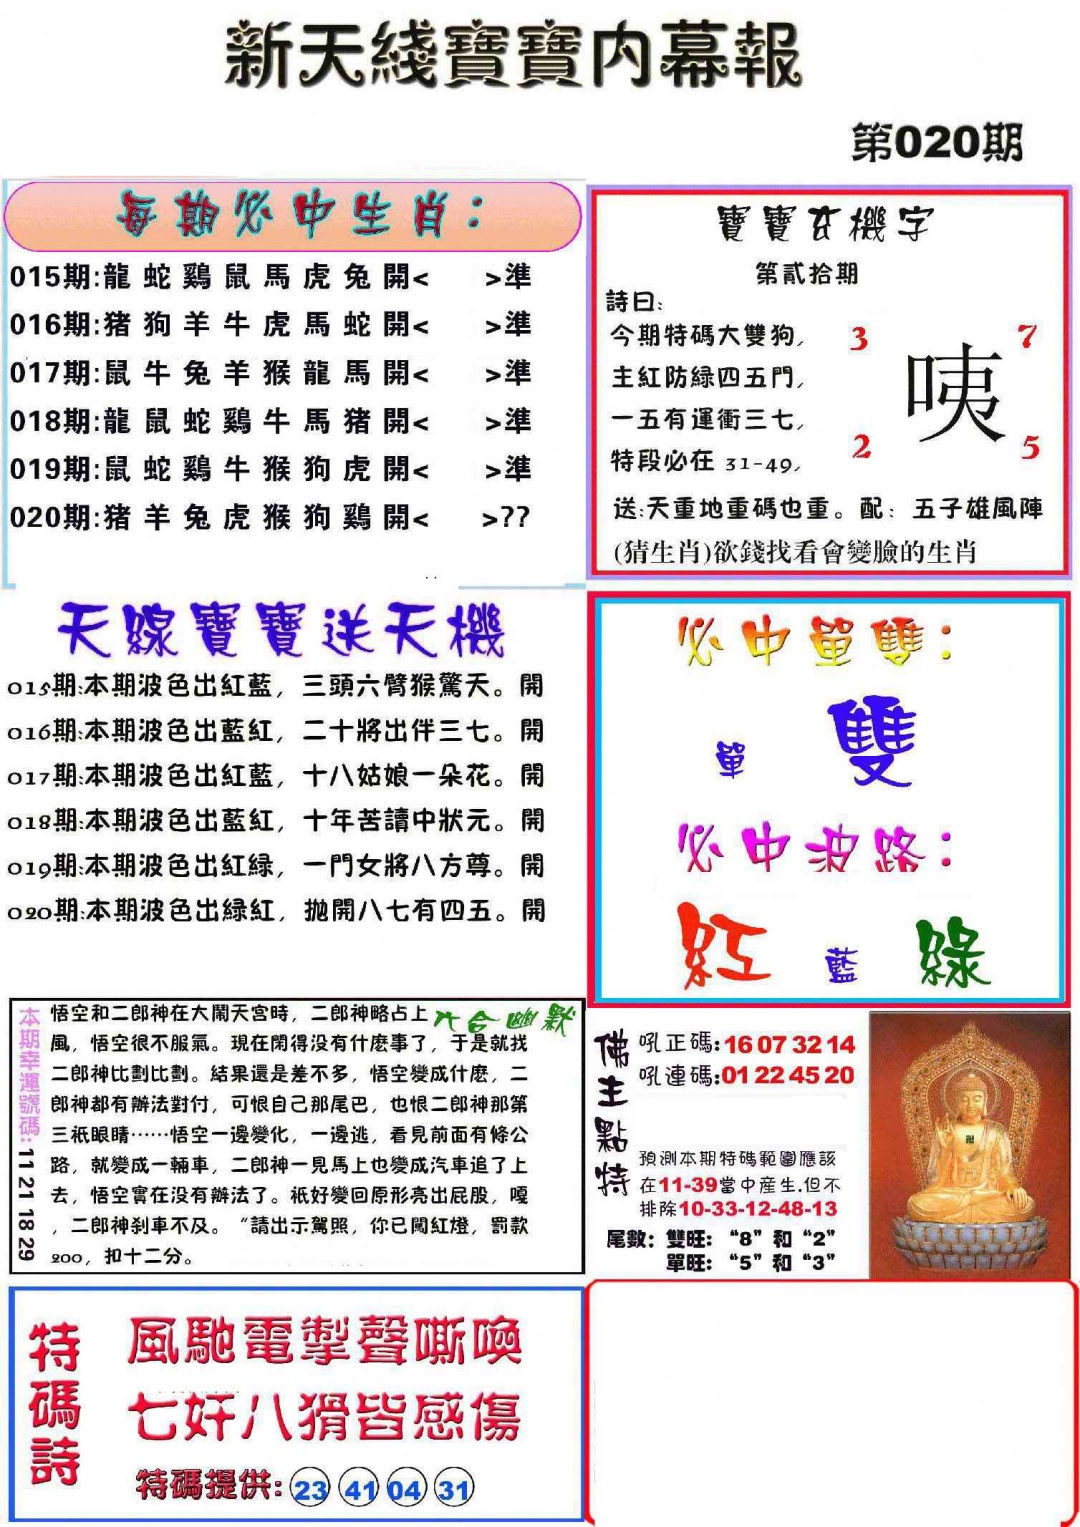 新天綫寶寶内幕報
第020期
每期必中生肖：
015期:龍 蛇 鷄 鼠 馬 虎 兔 開< >準
016期:猪 狗 羊 牛 虎 馬 蛇 開< >準
017期:鼠 牛 兔 羊 猴 龍 馬 開< >準
018期:龍 鼠 蛇 鷄 牛 馬 猪 開< >準
019期:鼠 蛇 鷄 牛 猴 狗 虎 開< >準
020期:猪 羊 兔 虎 猴 狗 鷄 開< >??
寶寶玄機字
第貳拾期
詩曰:
今期特碼大雙狗,
主紅防緑四五門,
一五有運衝三七,
特段必在 31-49,
3 7
咦
2 5
送:天重地重碼也重。配：五子雄風陣
(猜生肖)欲錢找看會變臉的生肖
天線寶寶送天機
015期:本期波色出紅藍, 三頭六臂猴驚天。開
016期:本期波色出藍紅, 二十將出伴三七。開
017期:本期波色出紅藍, 十八姑娘一朵花。開
018期:本期波色出藍紅, 十年苦讀中狀元。開
019期:本期波色出紅緑, 一門女將八方尊。開
020期:本期波色出緑紅, 拋開八七有四五。開
必中單雙：
單 雙
必中波路：
紅 藍 綠
本期幸運號碼: 11 21 18 29
六合幽默
悟空和二郎神在大鬧天宫時, 二郎神略占上
風, 悟空很不服氣。現在閑得没有什麽事了, 于是就找
二郎神比劃比劃。結果還是差不多, 悟空變成什麽, 二
郎神都有辦法對付, 可恨自己那尾巴, 也恨二郎神那第
三祇眼睛……悟空一邊變化, 一邊逃, 看見前面有條公
路, 就變成一輛車, 二郎神一見馬上也變成汽車追了上
去, 悟空實在没有辦法了。祇好變回原形亮出屁股, 嘎
, 二郎神刹車不及。“請出示駕照, 你已闖紅燈, 罰款
200, 扣十二分。
佛主點特
吼正碼:16 07 32 14
吼連碼:01 22 45 20
預測本期特碼範圍應該
在11-39當中産生.但不
排除10-33-12-48-13
尾數：雙旺：“8”和“2”
單旺：“5”和“3”
特碼詩
風馳電掣聲嘶喚
七奸八猾皆感傷
特碼提供: 23 41 04 31